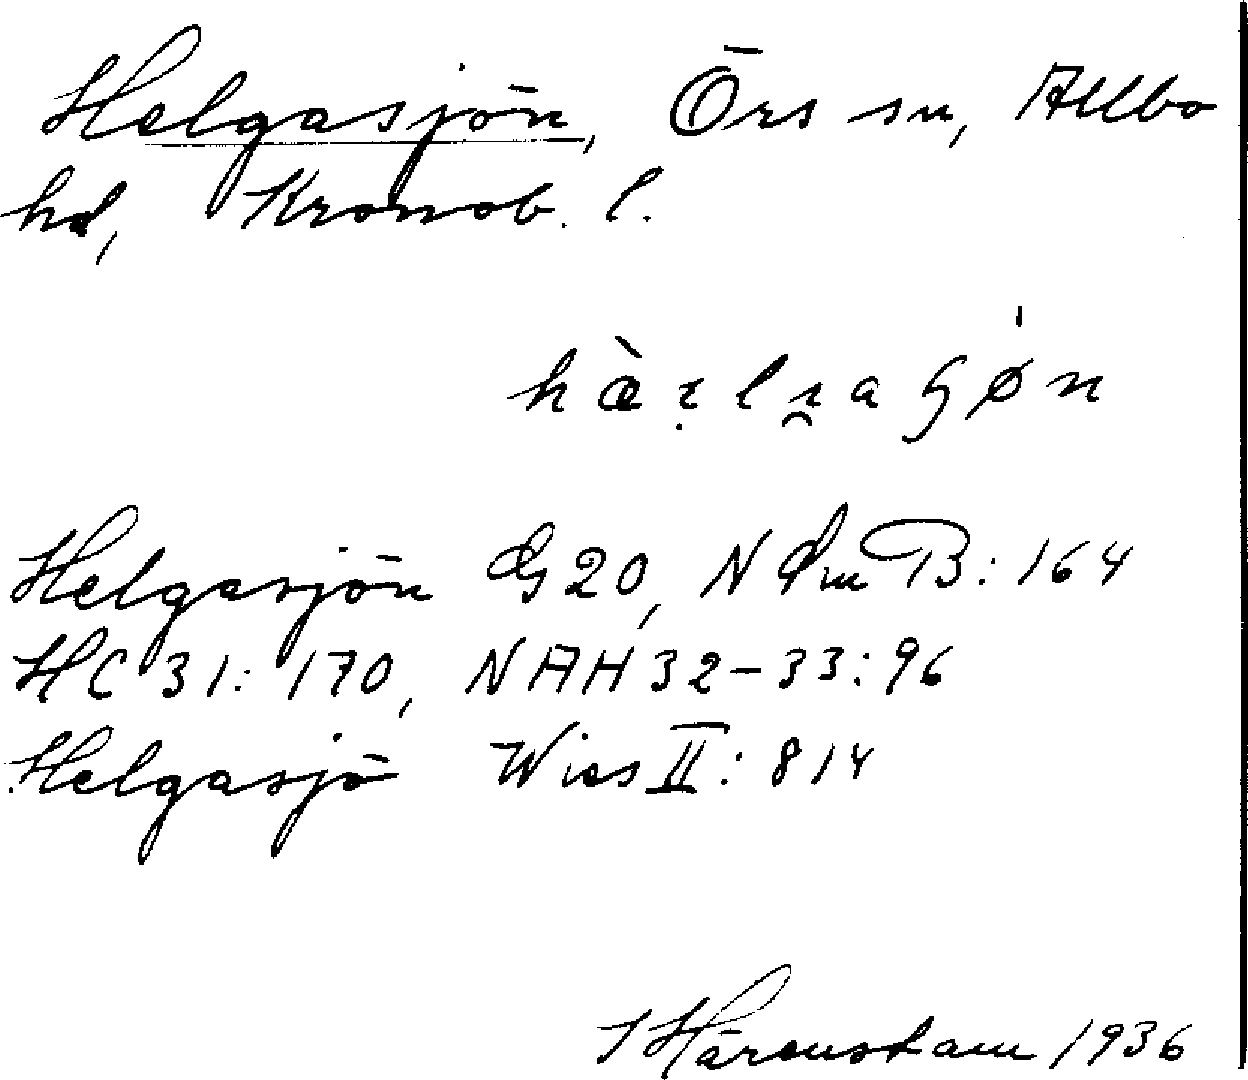 Helgasjön, Örs sn, Allbo
hd, Kronob. l.
Helgasjön G 20, N Sm B: 164
HC 31: 170, NAH 32-33: 96
Helgasjö Wies II: 814
Härenstam 1936